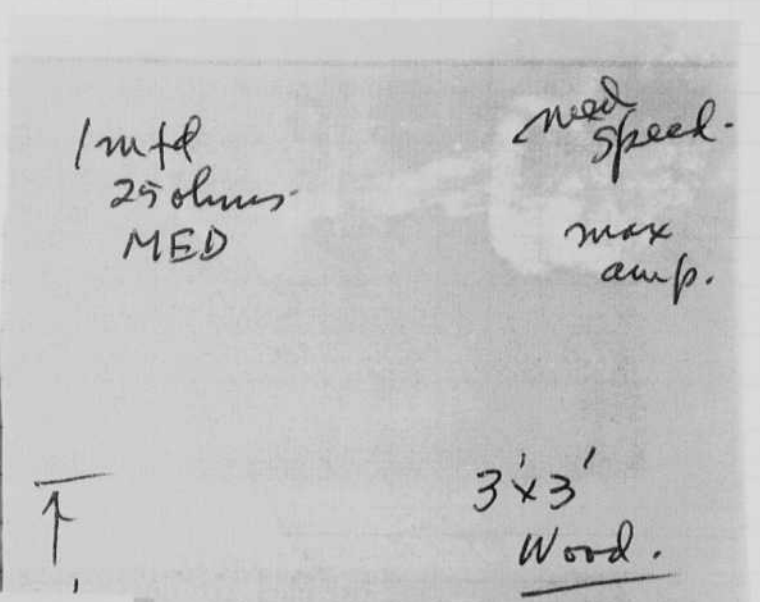 1 mfd
25 ohms.
MED
med
speed.
max
amp.
3'x3'
Wood.